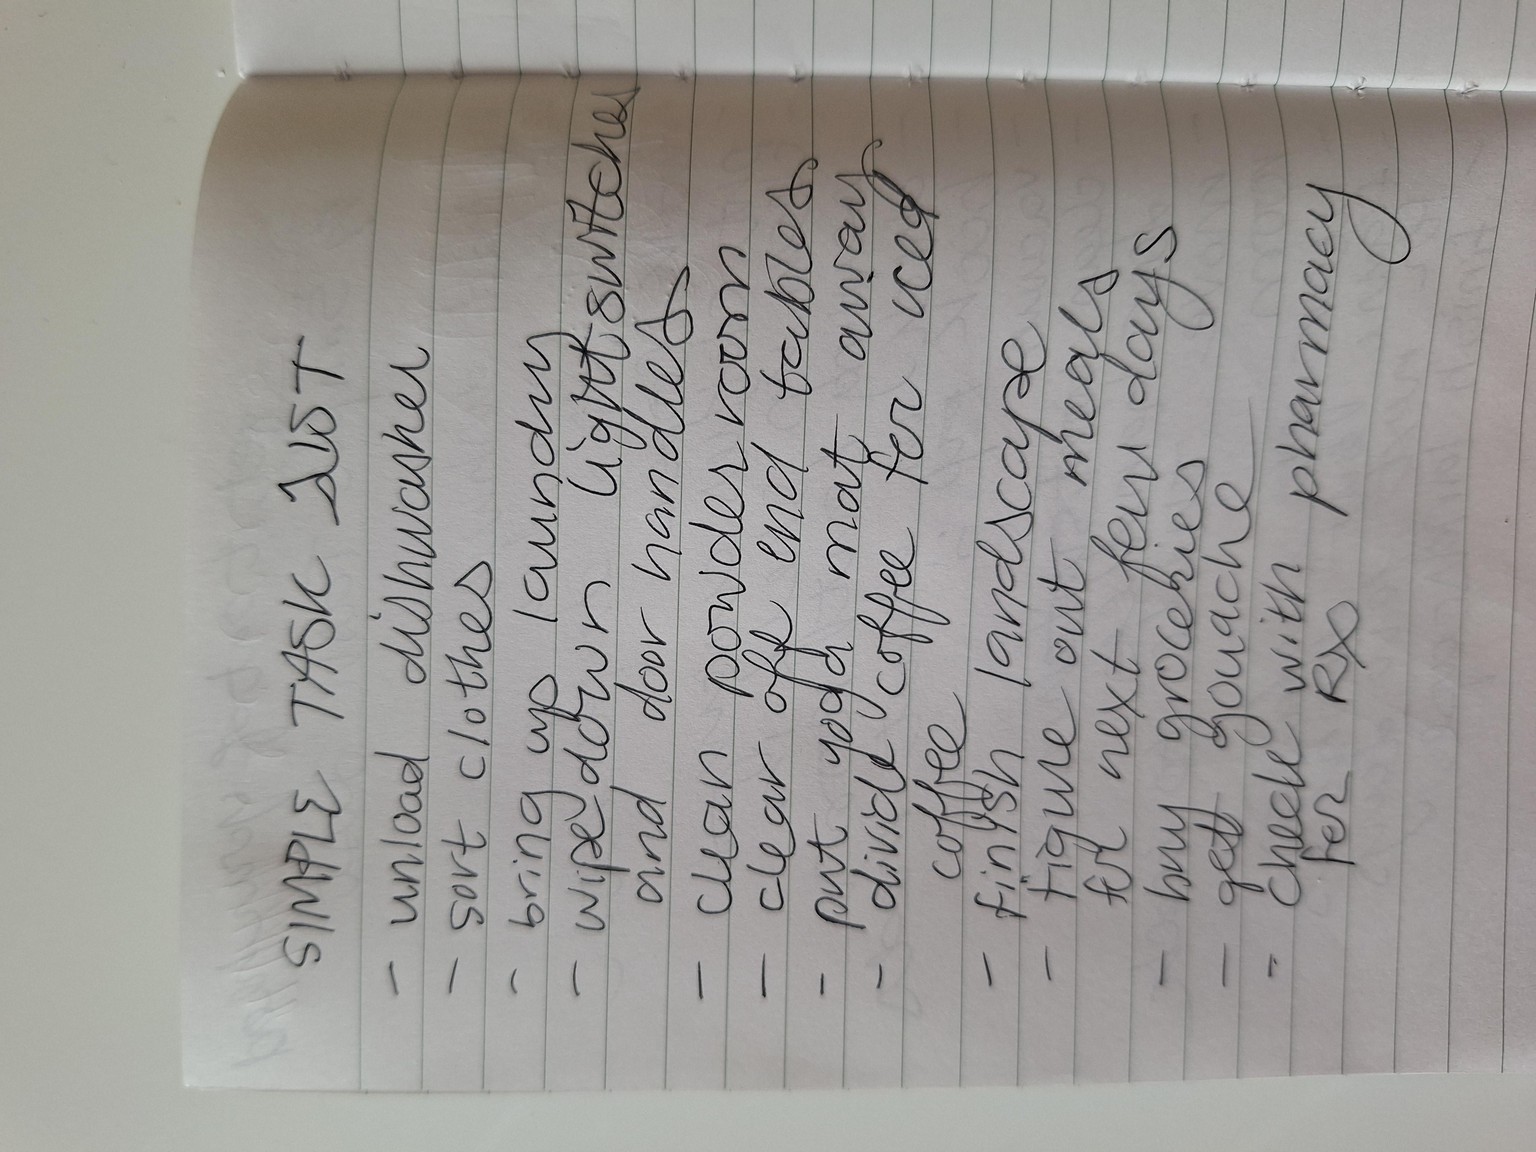 SIMPLE TASK LIST
- unload dishwasher
- sort clothes
- bring up laundry
- wipe down light switches
and door handles
- clean powder room
- clear off end tables
- put yoga mat away
- divide coffee for iced
coffee
- finish landscape
- figure out meals
for next few days
- buy groceries
- get gouache
- check with pharmacy
for RXs